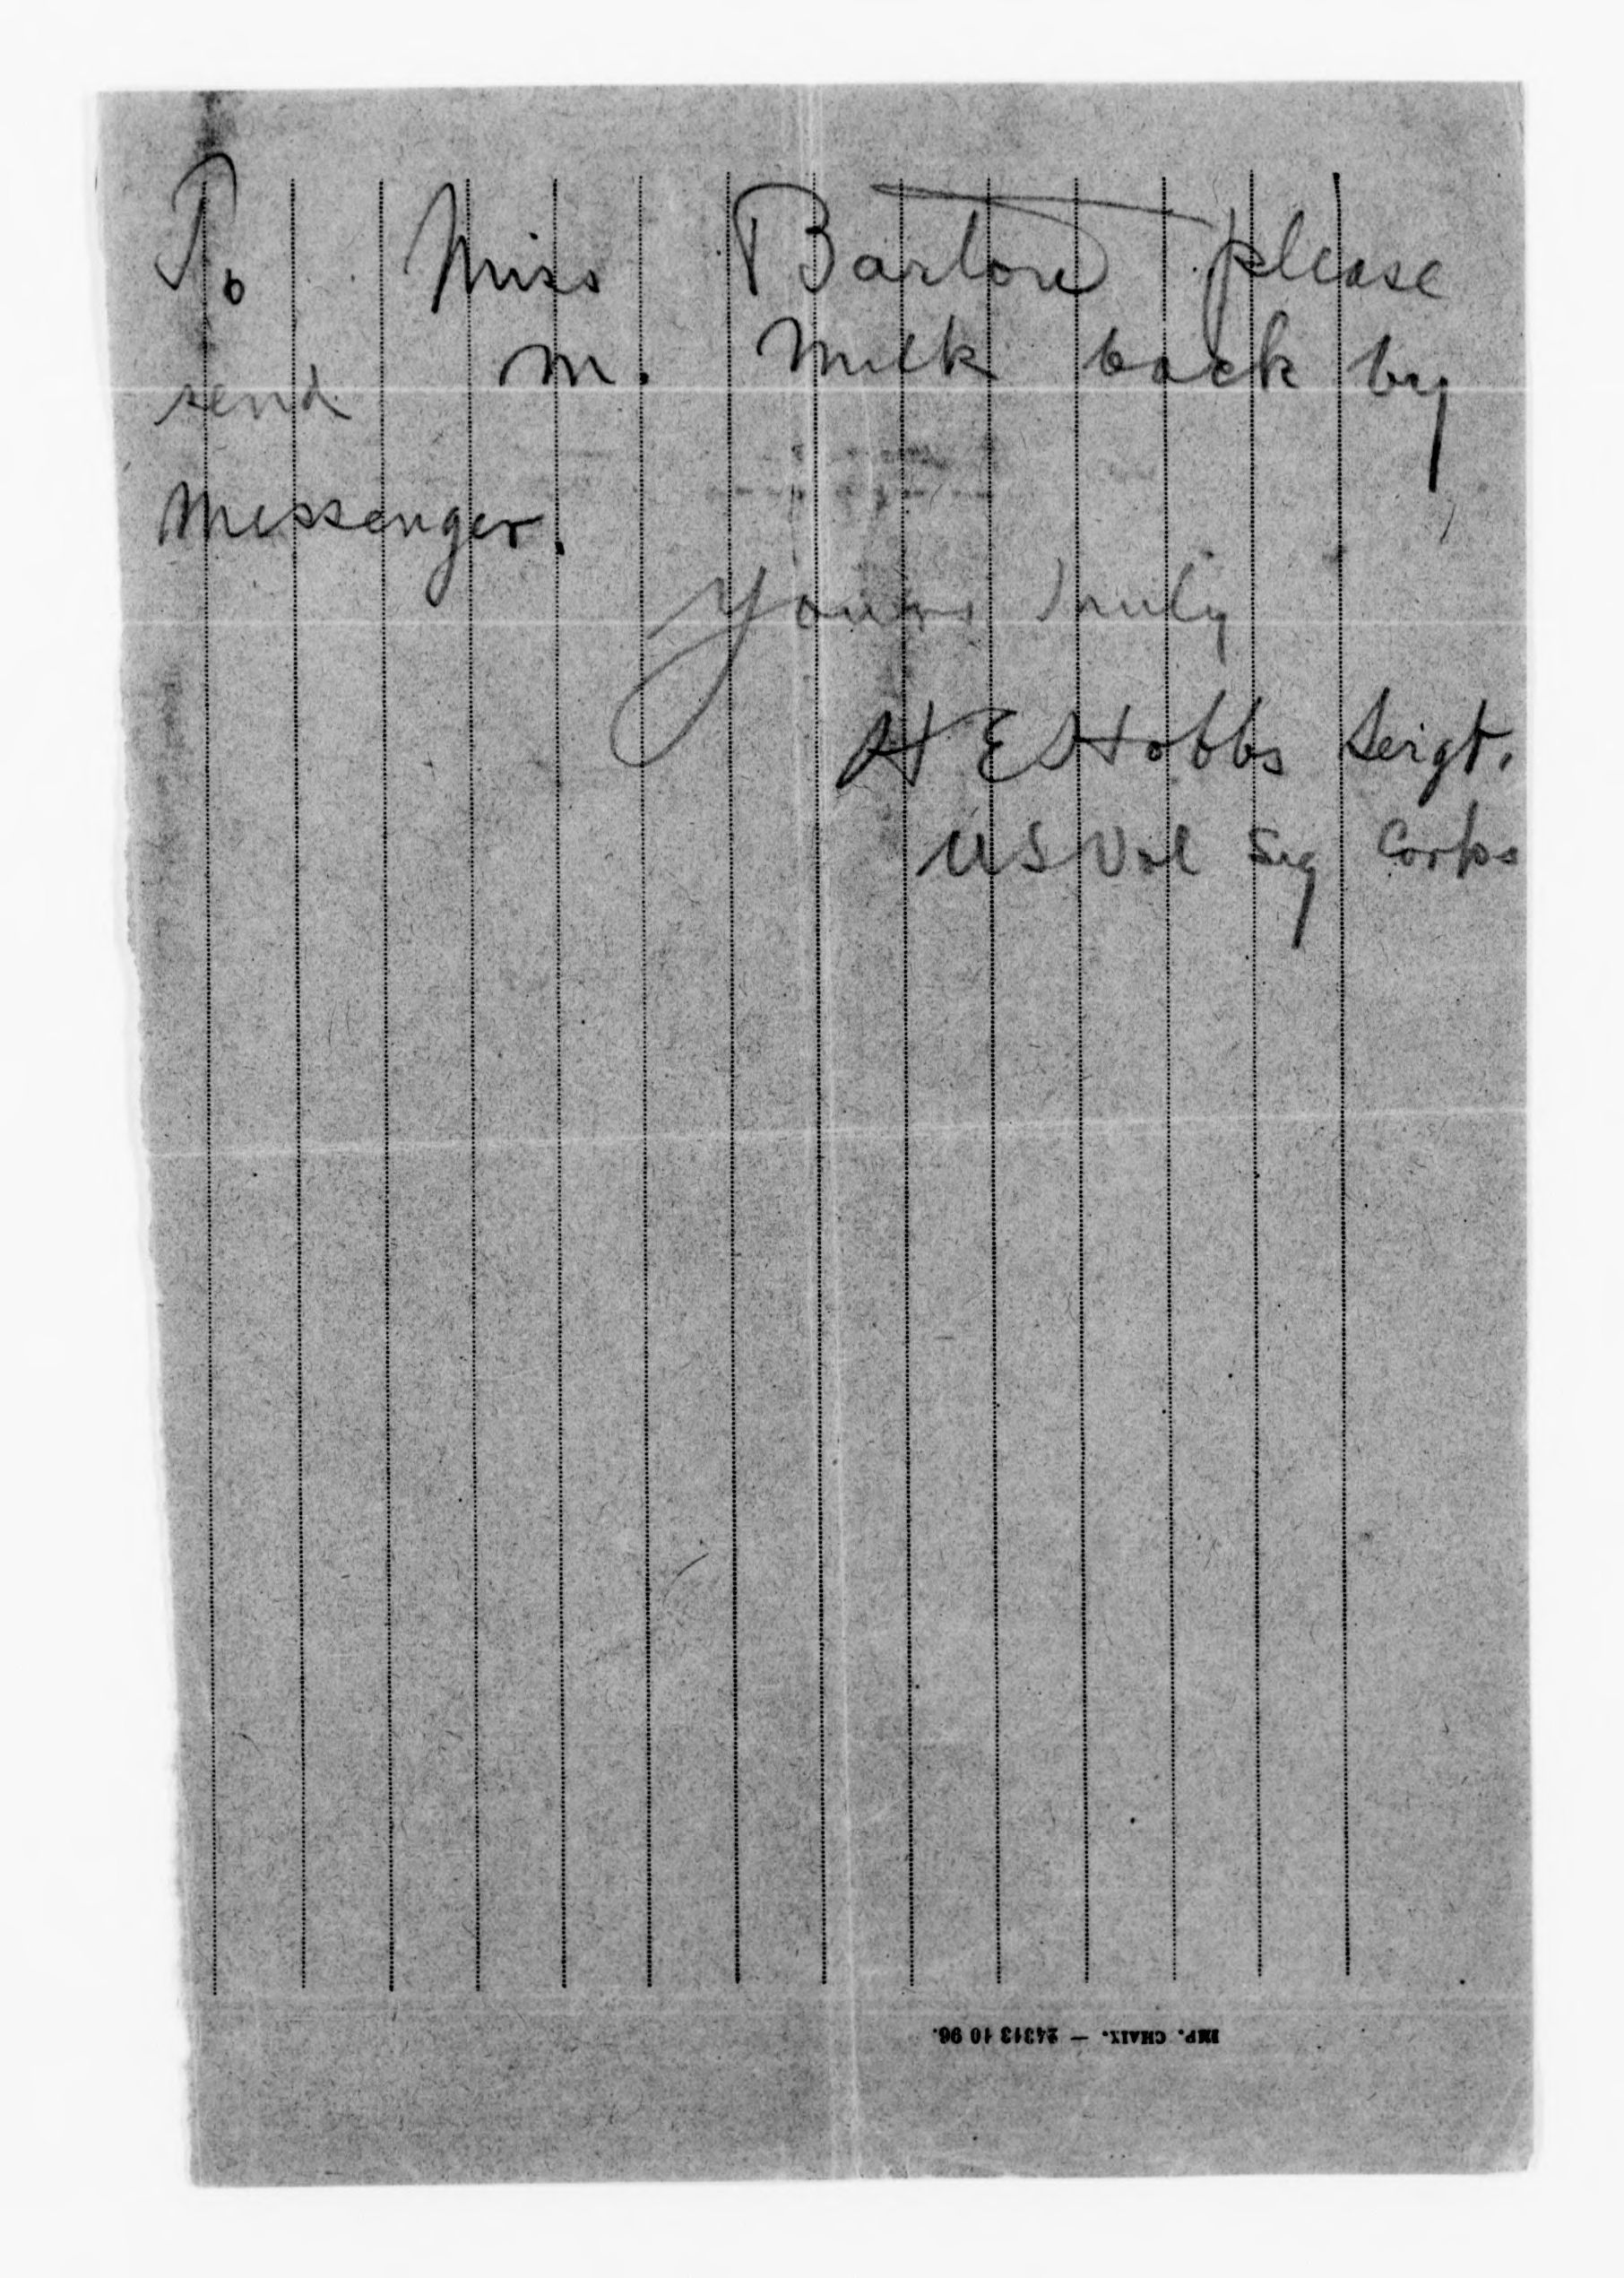 To Miss Barton please
send M. Milk back by
Messenger.
Yours truly
H E Hobbs Seigt.
US Vol Sig Corps
IMP. CHAIX. — 24313 10 96.